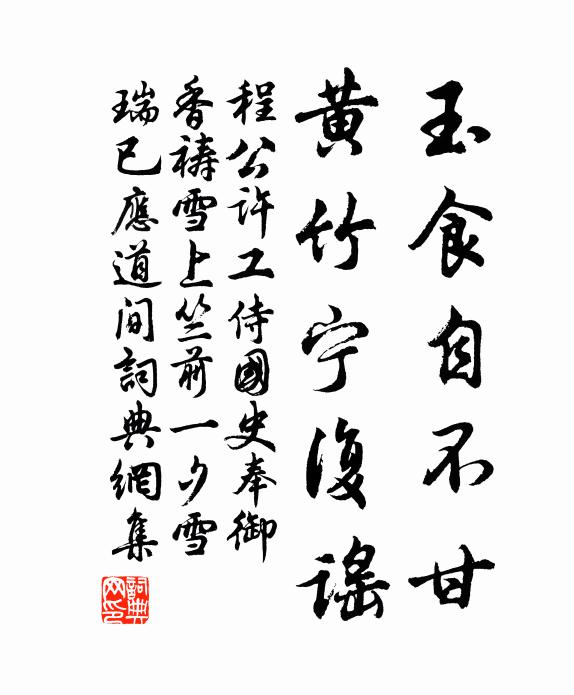 玉食自不甘
黄竹宁復謠
程公许工侍國史奉御
香祷雪上竺前一夕雪
瑞已應道间詞典網集
詞典网印